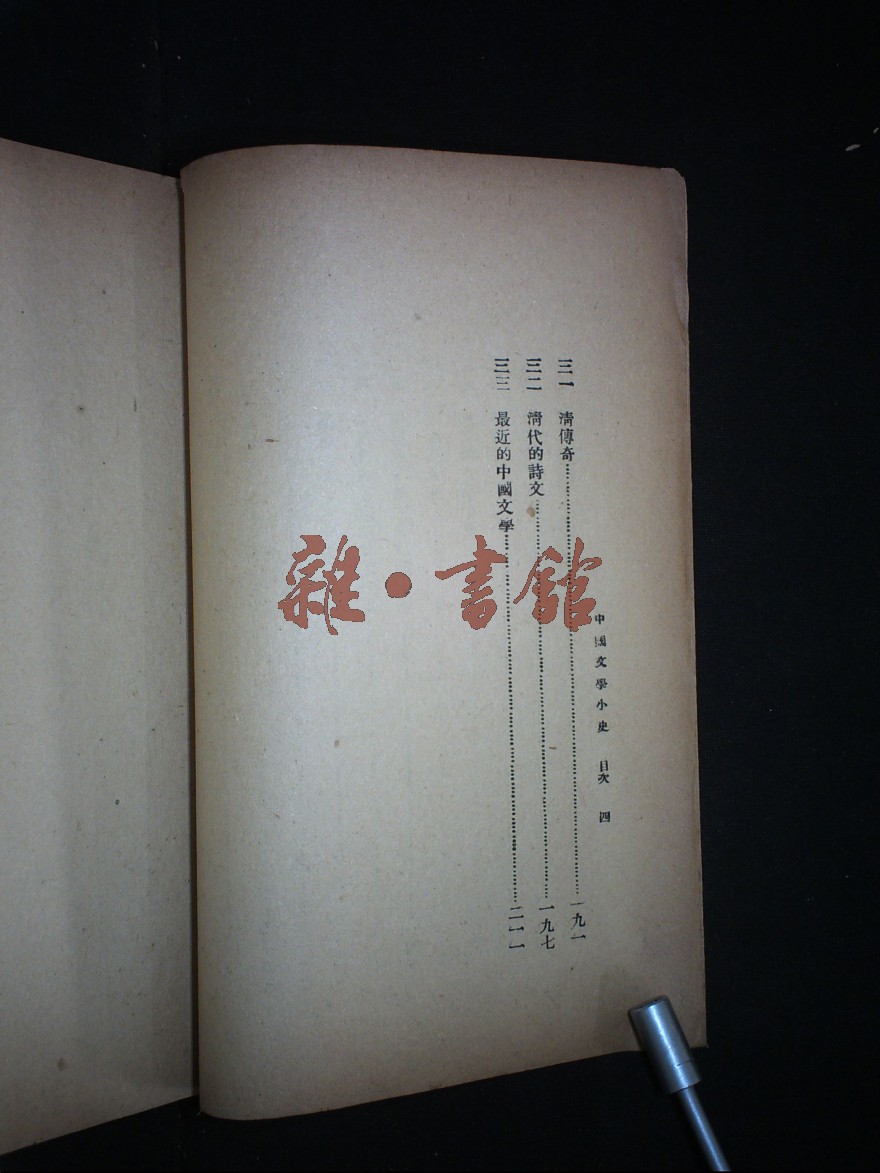 中國文學小史 目次 四
三一 清傳奇……一九一
三二 清代的詩文……一九七
三三 最近的中國文學……二一一
雜·書館